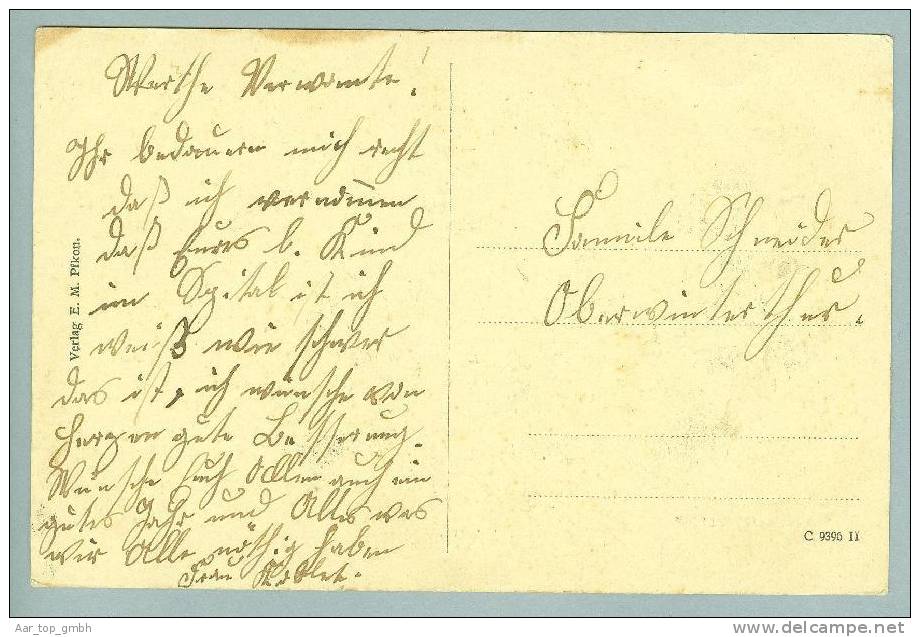 Werthe Verwante!
Ihr bedauern mich recht
daß ich vernomen
daß Eures l. Kind
im Spital ist ich
weiß wie schwer
das ist, ich wünsche von
Herzen gute Besserung.
Wünsche Euch Allen auch ein
gutes Jahr und Alles was
wir Alle nöthig haben
Frau
Verlag E. M. Pfkon.
Familie Schneider
Oberwinterthur.
C 9396 II
Aar_top_gmbh
http://www.delcampe.net